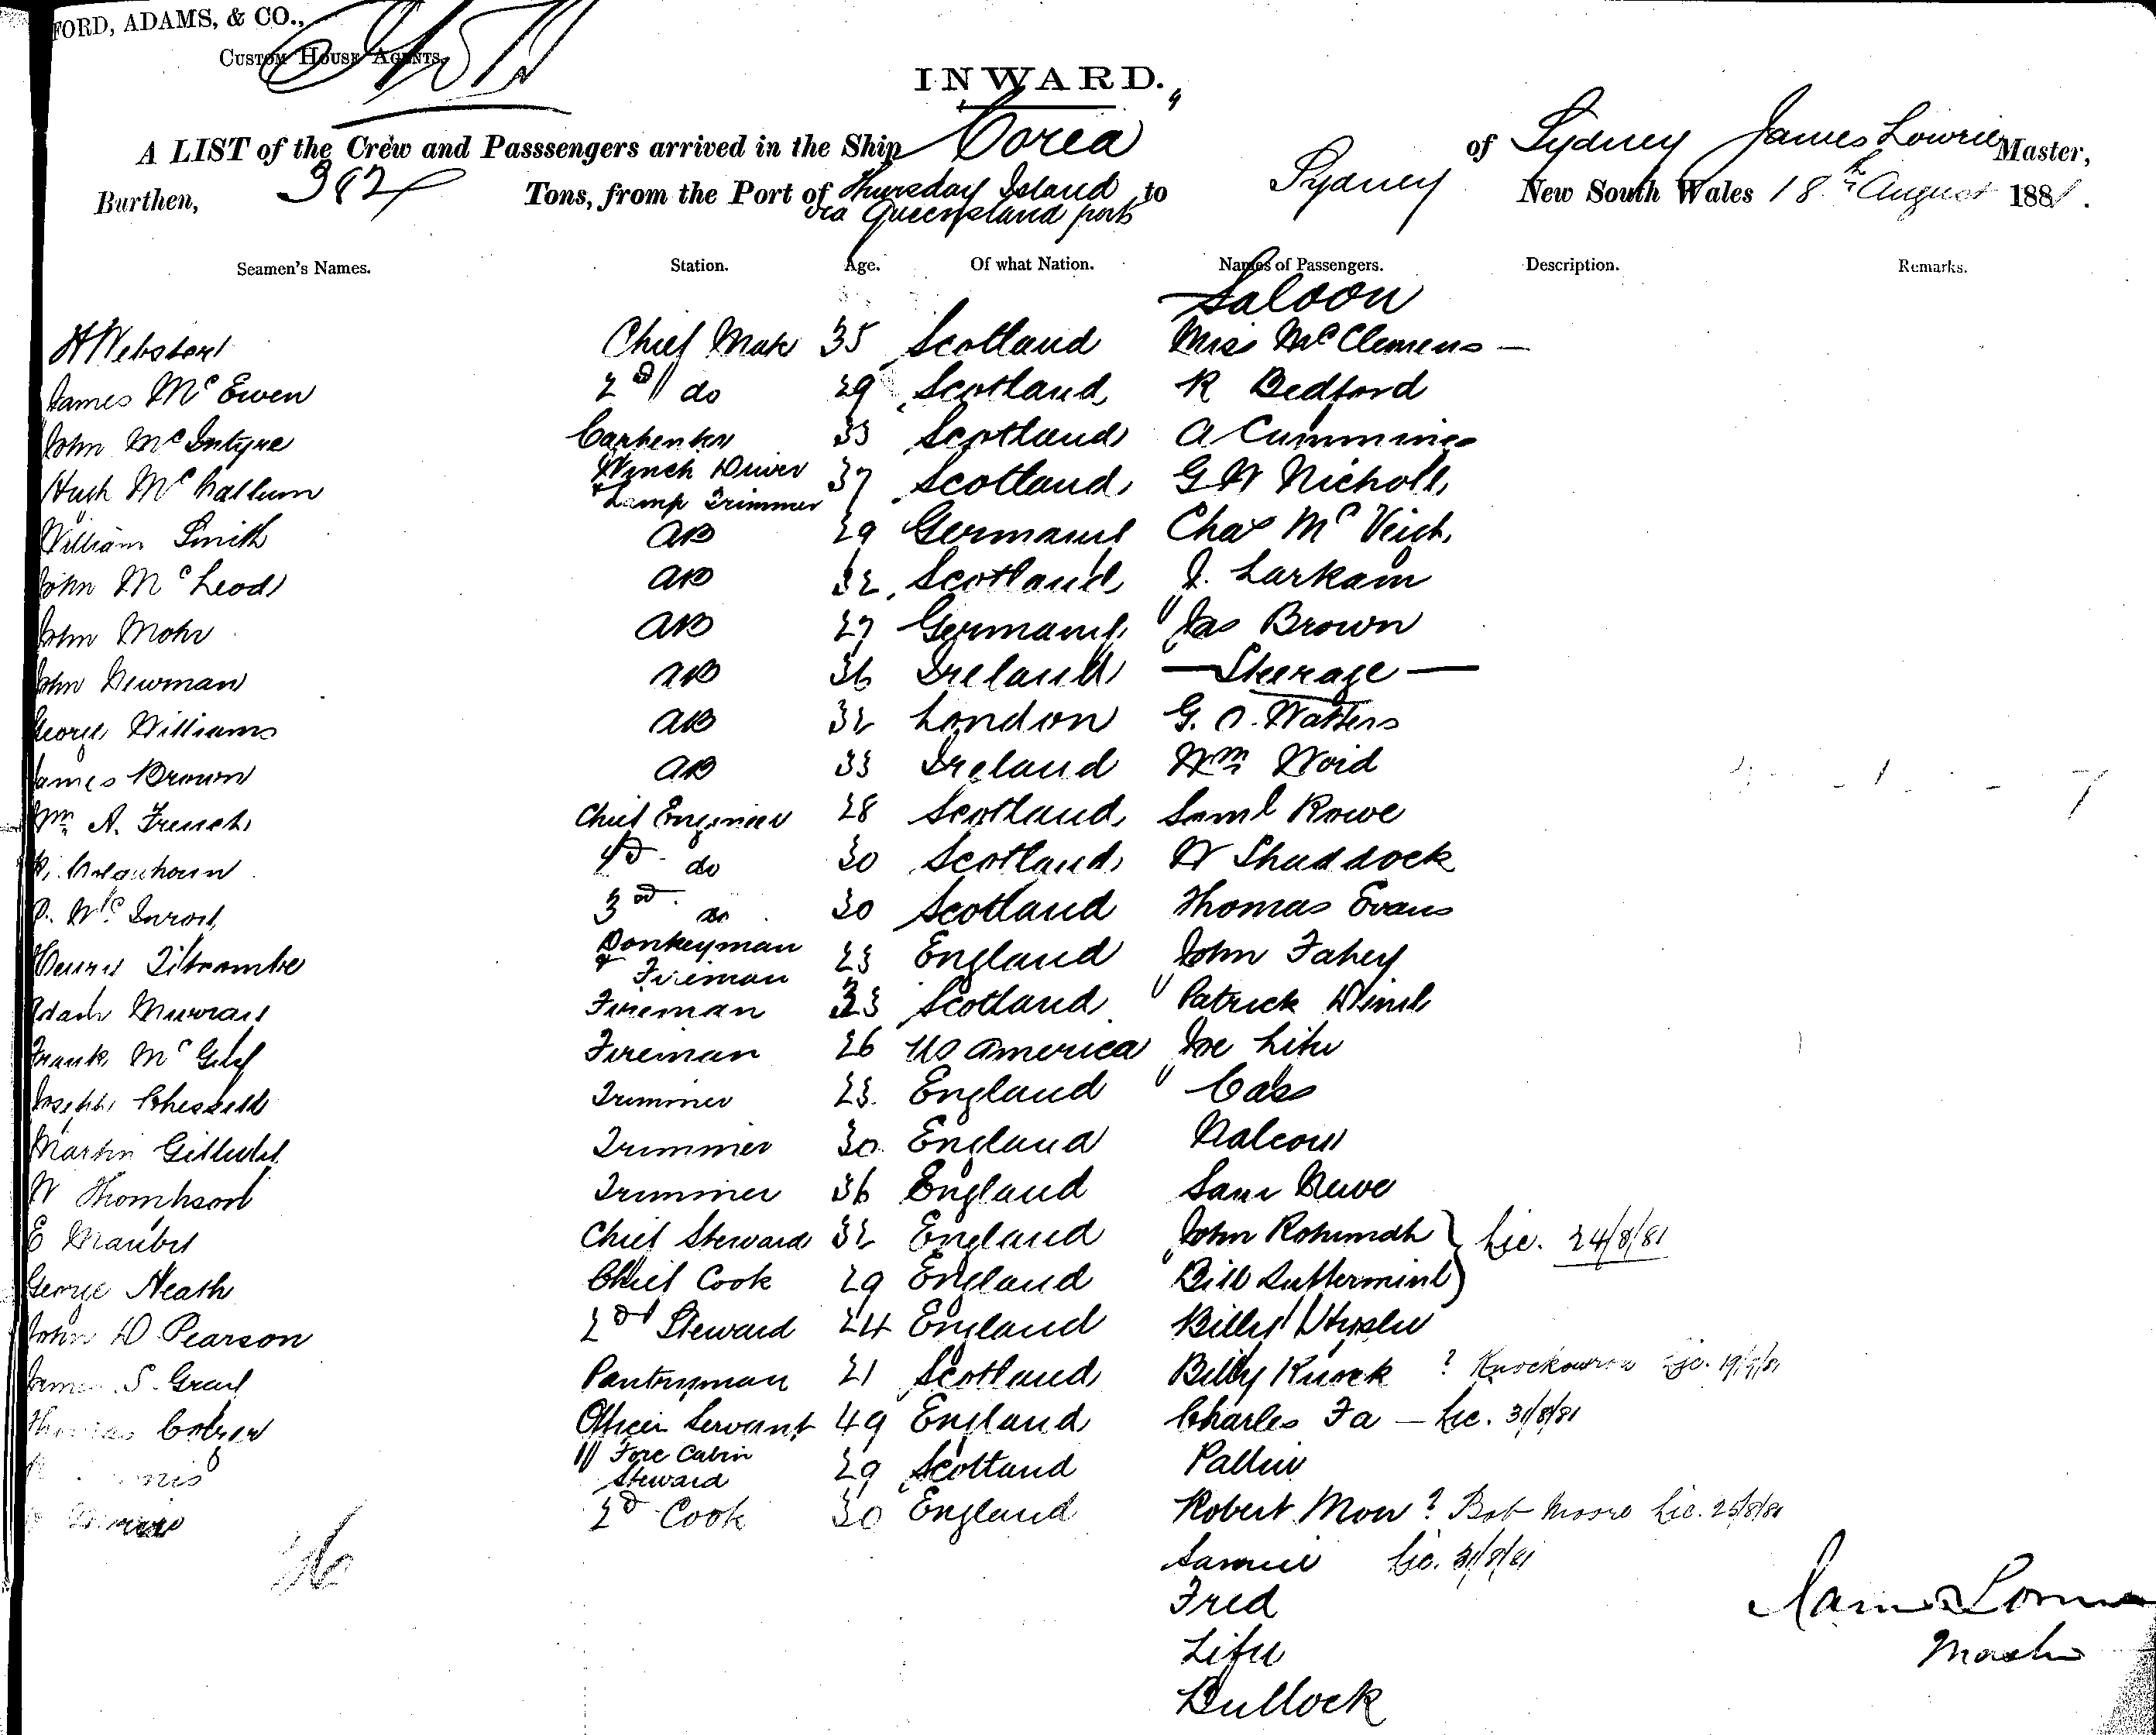 FORD, ADAMS, & CO.,
CUSTOM HOUSE AGENTS.
INWARD.
A LIST of the Crew and Passsengers arrived in the Ship "Corea" of Sydney James Lowrie Master,
Burthen, Tons, from the Port of Thursday Island via Queensland ports to Sydney New South Wales 18th August 1881.
Seamen's Names. Station. Age. Of what Nation. Names of Passengers. Description. Remarks.
Saloon
H Webster Chief Mate 35 Scotland Miss McClemens —
James McEwen 2nd do 29 Scotland R Bedford
John McIntyre Carpenter 33 Scotland A Cummines
Hugh McCallum Winch Driver & Lamp Trimmer 37 Scotland G W Nicholl
William Smith AB 29 Germany Chas McVeich
John McLeod AB 32 Scotland J. Larkam
John Mohr AB 27 Germany Jas Brown
John Newman AB 36 Ireland — Steerage —
George Williams AB 32 London G. Watters
James Brown AB 33 Ireland Wm Woid
Wm A. French Chief Engineer 28 Scotland Saml Rowe
Colquhoun do 30 Scotland W Shaddock
3rd do 30 Scotland Thomas Evans
Henry Titcombe Donkeyman & Fireman 23 England John Fahey
Adam Murray Fireman 33 Scotland Patrick
Frank Fireman 26 US America Joe Lifu
Joseph Trimmer 23 England Cass
Martin Trimmer 30 England
W Thompson Trimmer 36 England Sam
E Chief Steward 32 England John Rohumah } Lic. 24/8/81
George Heath Chief Cook 29 England Bill )
John D Pearson 2nd Steward 24 England Billy
James S. Gray Pantryman 21 Scotland Billy Knock ? Lic. 19/9/81
Thomas Officer Servant 49 England Charles Fa — Lic. 31/8/81
Fore Cabin Steward 29 Scotland
2d Cook 30 England Robert Mow ? Bob Moore Lic. 25/8/81
26 Lic. 31/8/81
Fred
Lifu
Bullock
James Lowrie
Master